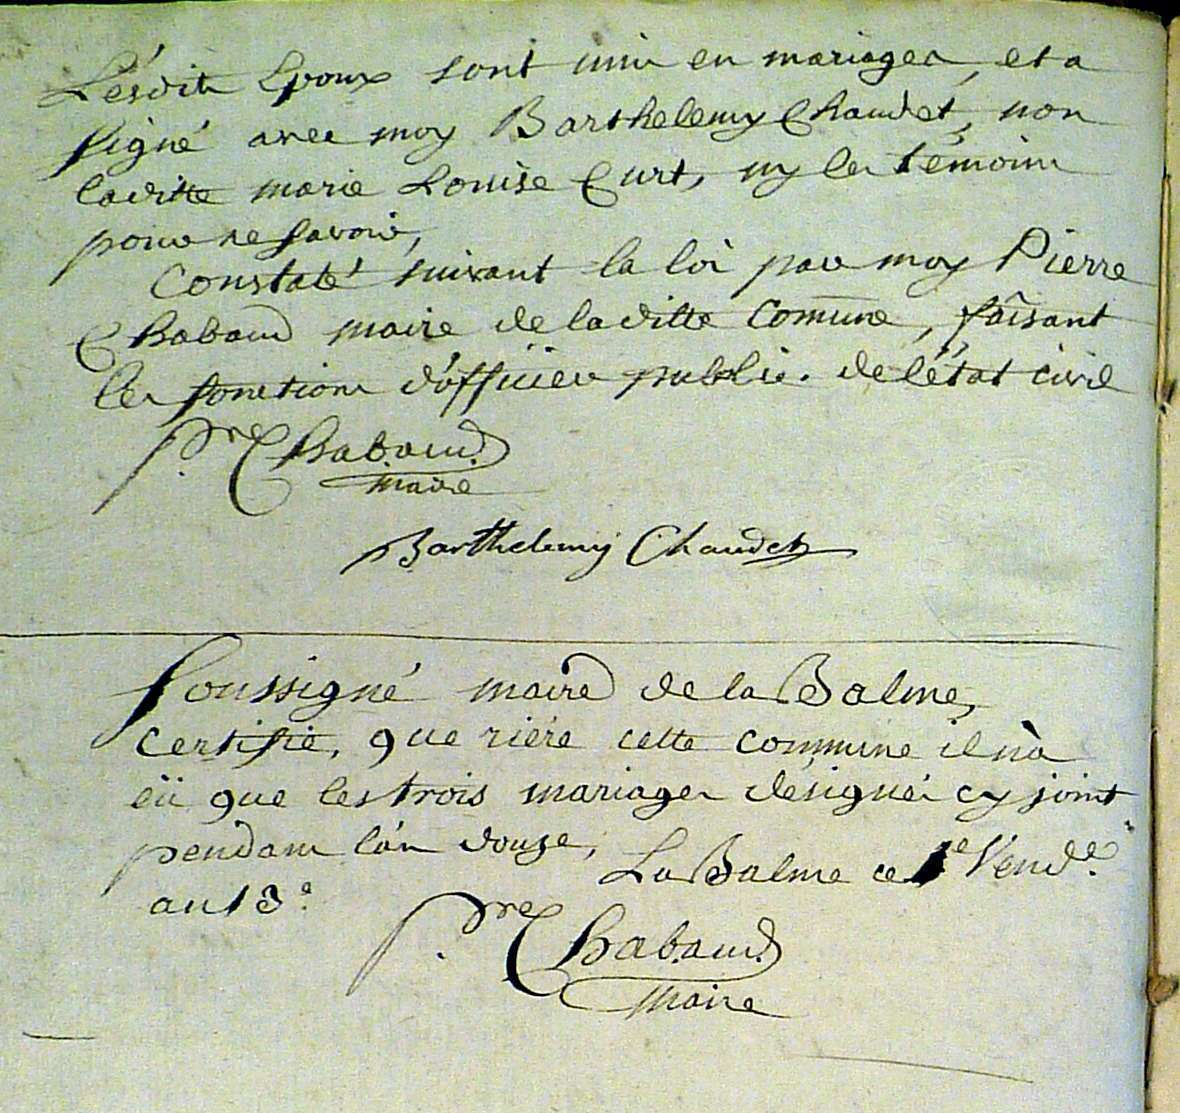 Lésdits Epoux sont unis en mariages, et a
signé avec moy Barthelemy Chaudet, non
laditte marie Louise Curt, ny les témoins
pour ne savoir,
Constaté suivant la loi par moy Pierre
Chabaud maire de laditte Comune, faisant
les fonctions d'officier public. de l'état civil
P.re Chabaud.
Maire
Barthelemy Chaudet
Soussigné maire de la Balme,
certifie, que riére cette commune il n'a
eü que les trois mariages désignés cy joint
pendant l'an douze, La Balme ce 1e Vend.e
an 13.e
P.re Chabaud.
Maire